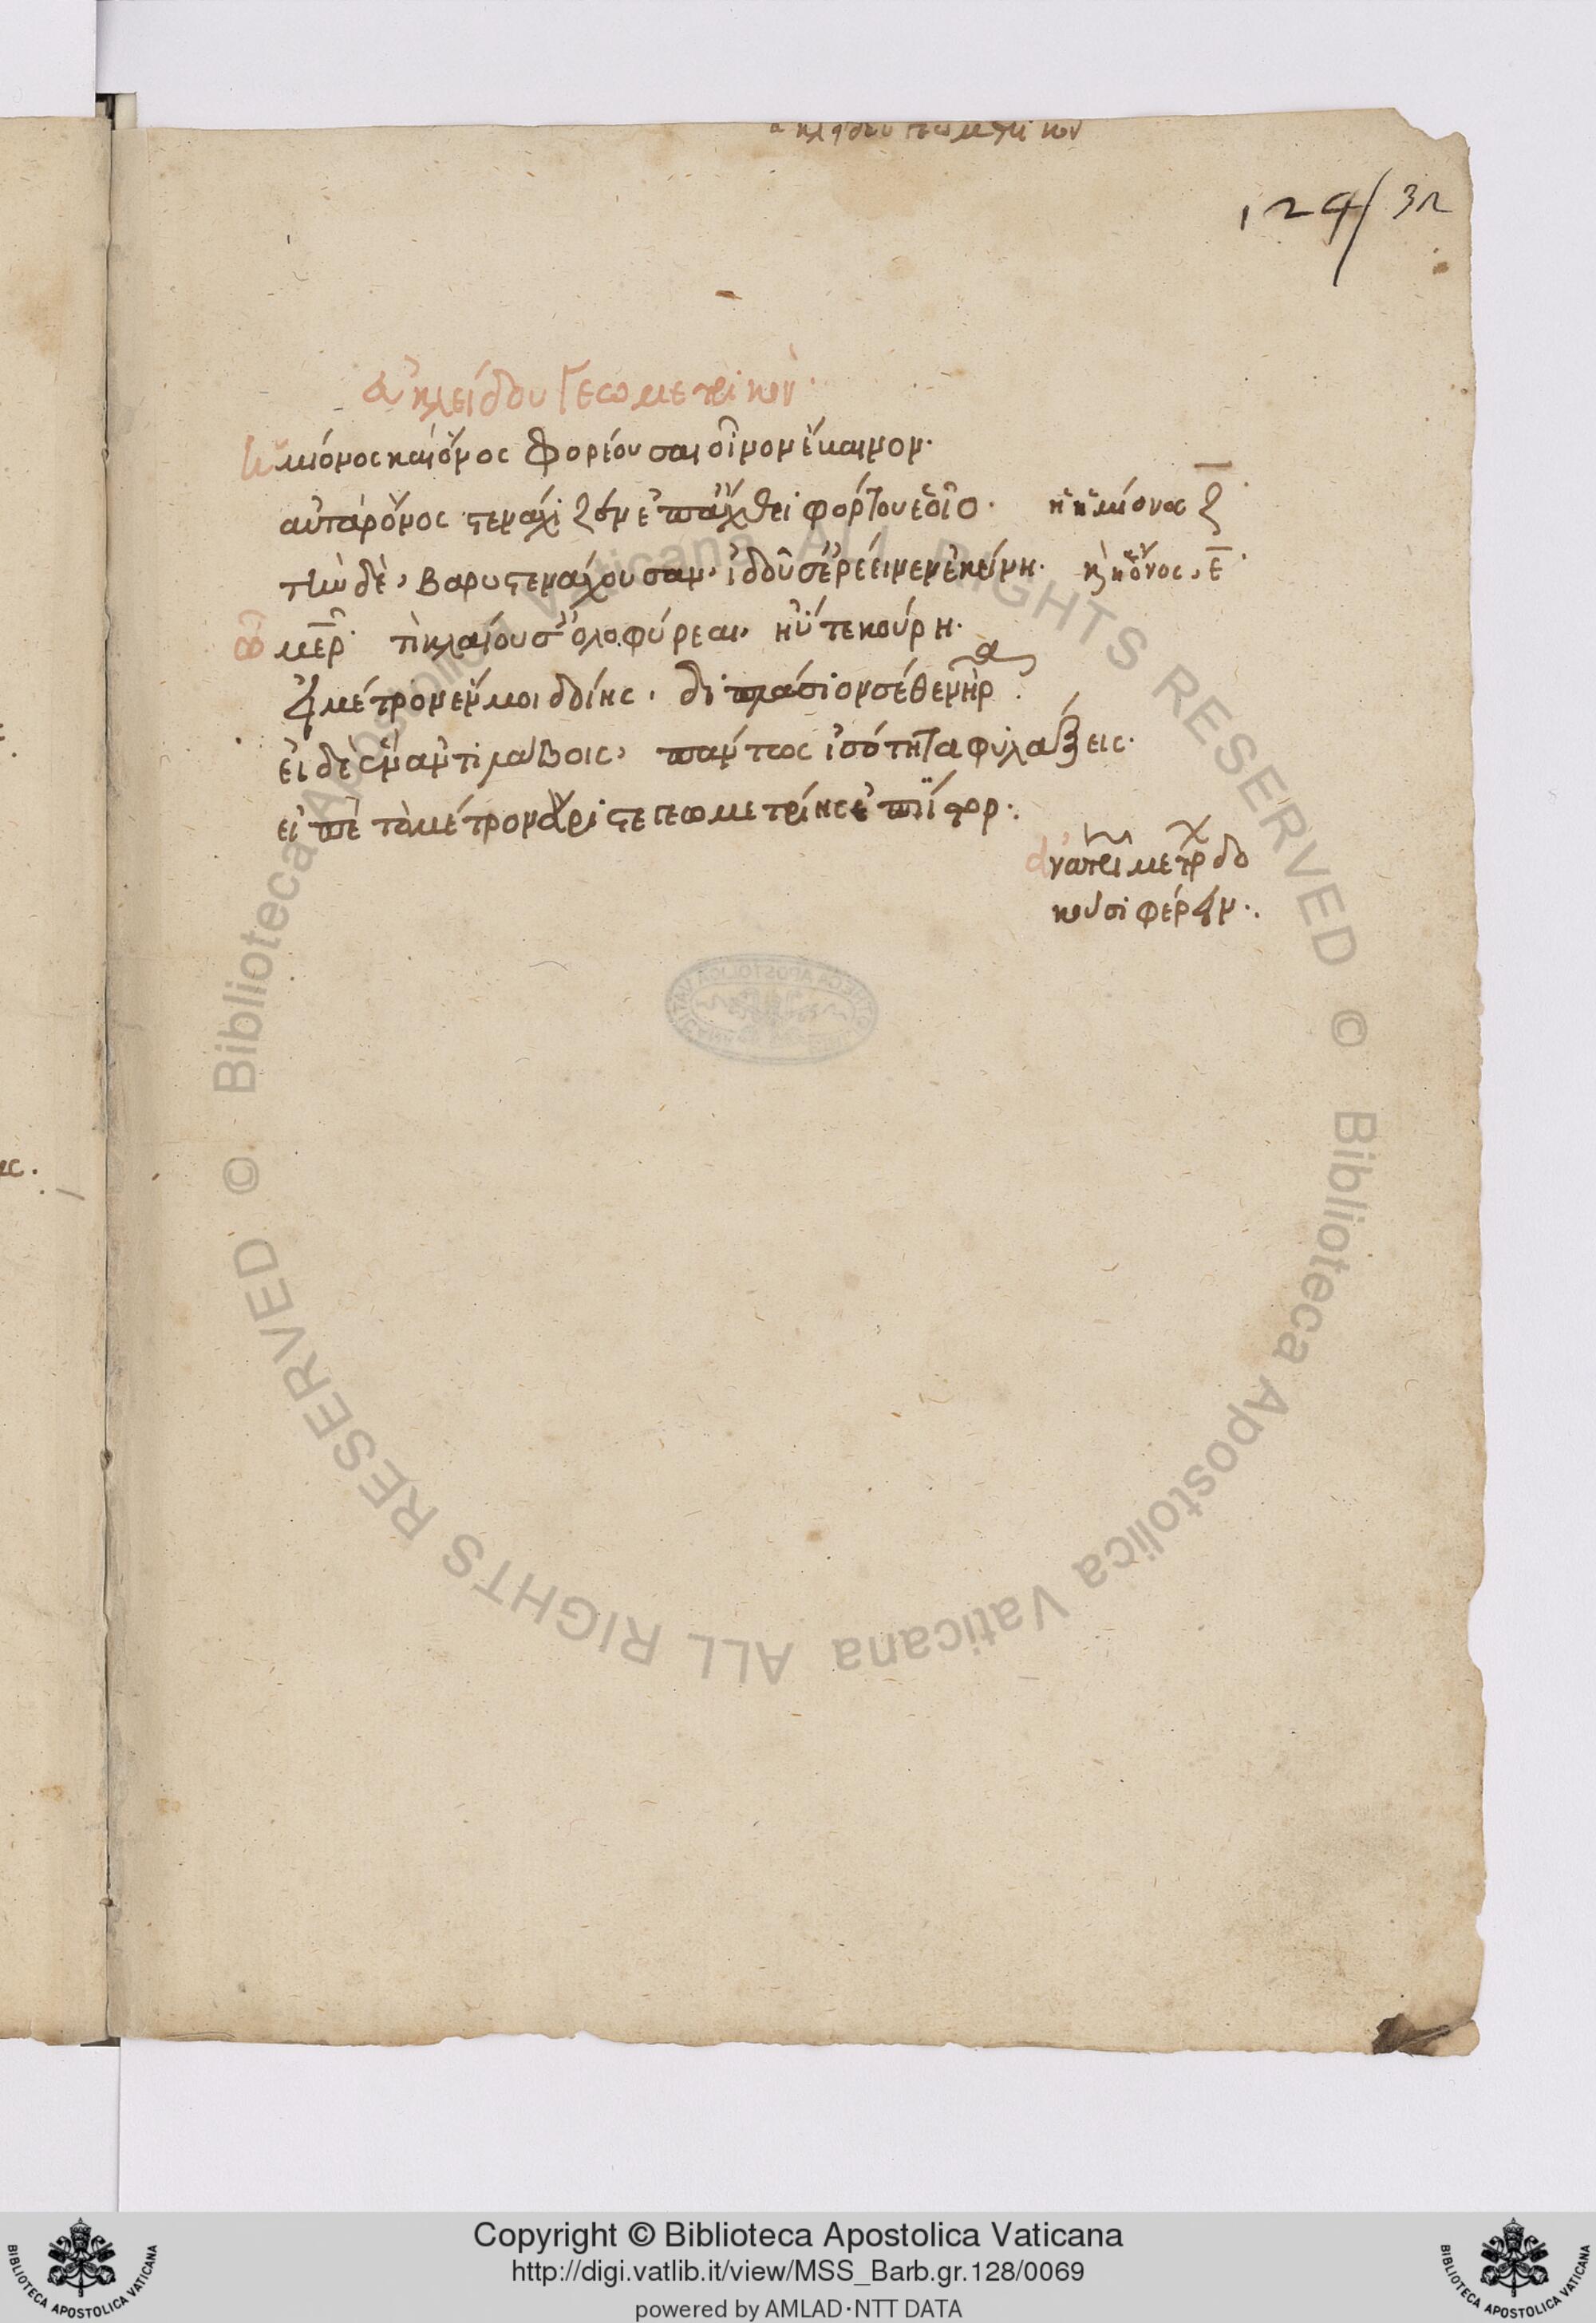 124/32
εὐκλείδου γεωμετρικὸν·
ἡμίονος καὶ ὄνος φορέουσαι οἶνον ἔβαινον·
αὐτὰρ ὄνος στενάχιζεν ἐπ' ἄχθει φόρτου ἑοῖο· ἡ ἡμίονος ζ·
τὴν δὲ, βαρυστενάχουσαν, ἰδοῦσ' ἐρέεινεν ἐκείνη· κ(αὶ) ἡ ὄνος, ε·
μῆτερ· τί κλαίουσ' ὀλοφύρεαι, ἠΰτε κούρη·
εἰ μέτρον ἕν μοι δοίης, διπλάσιον σέθεν ἦρα·
εἰ δὲ ἓν ἀντιλάβοις, πάντως ἰσότητα φυλάξεις·
εἰπὲ τὸ μέτρον ἄριστε γεωμετρίης ἐπιΐστορ·
μετρ
φέρειν·
Copyright © Biblioteca Apostolica Vaticana
http://digi.vatlib.it/view/MSS_Barb.gr.128/0069
powered by AMLAD·NTT DATA
BIBLIOTECA APOSTOLICA VATICANA
BIBLIOTECA APOSTOLICA VATICANA
© Biblioteca Apostolica Vaticana ALL RIGHTS RESERVED
© Biblioteca Apostolica Vaticana ALL RIGHTS RESERVED